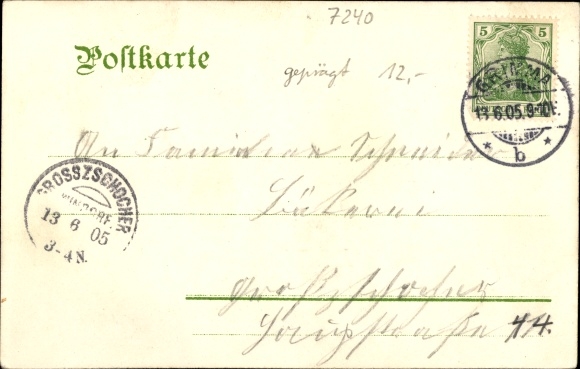 7240
Postkarte
geprägt 12,-
5 5
GRIMMA
13.6.05.9-10V.
* b *
An Familie Schneider
Bäckerei
Großzschocher
Hauptstraße 44.
GROSSZSCHOCHER
WINDORF
13 6 05
3-4N.